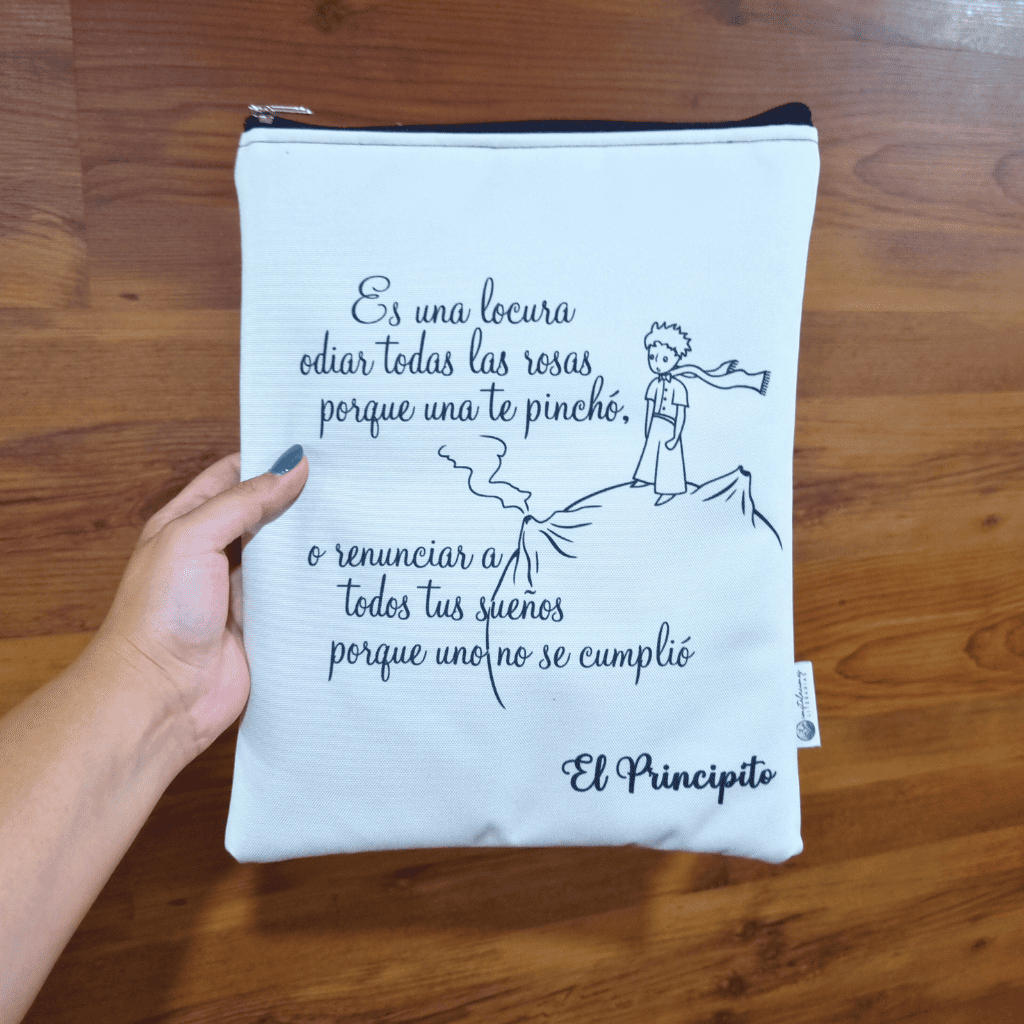 Es una locura
odiar todas las rosas
porque una te pinchó,
o renunciar a
todos tus sueños
porque uno no se cumplió
El Principito
LITERARIAS